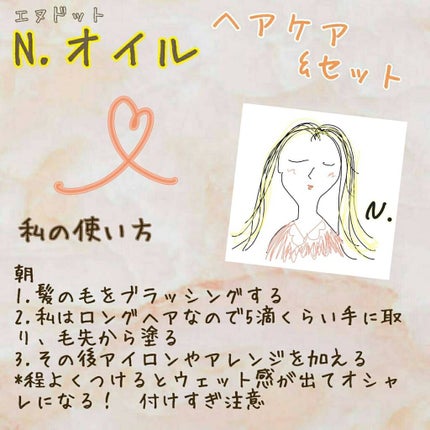 エヌドット
N.オイル
ヘアケア
&セット
N.
私の使い方
朝
1.髪の毛をブラッシングする
2.私はロングヘアなので5滴くらい手に取
り、毛先から塗る
3.その後アイロンやアレンジを加える
*程よくつけるとウェット感が出てオシャ
レになる！　付けすぎ注意